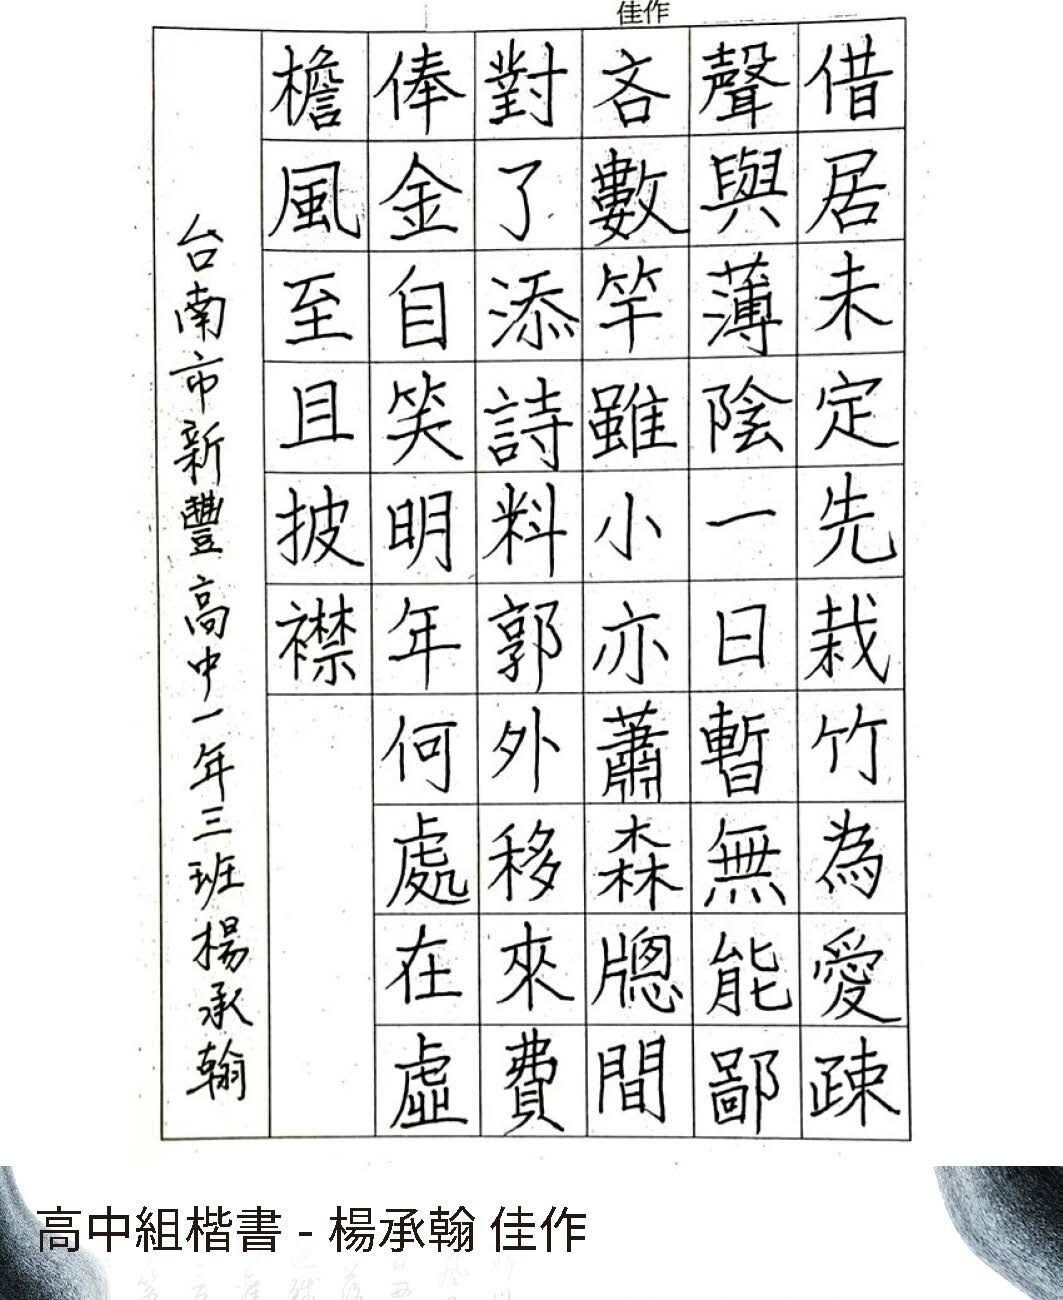 佳作
借居未定先栽竹為愛疎
聲與薄陰一日暫無能鄙
吝數竿雖小亦蕭森牕間
對了添詩料郭外移來費
俸金自笑明年何處在虛
檐風至且披襟
台南市新豐高中一年三班楊承翰
高中組楷書 - 楊承翰 佳作